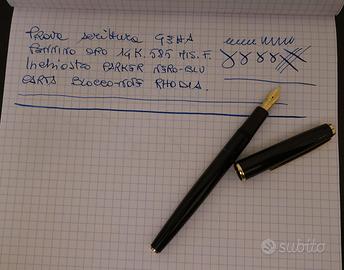 Prova scrittura GEHA
PENNINO ORO 14K. 585 MIS. F.
Inchiostro PARKER NERO-BLU
CARTA BLOCCO-NOTE RHODIA.
subito